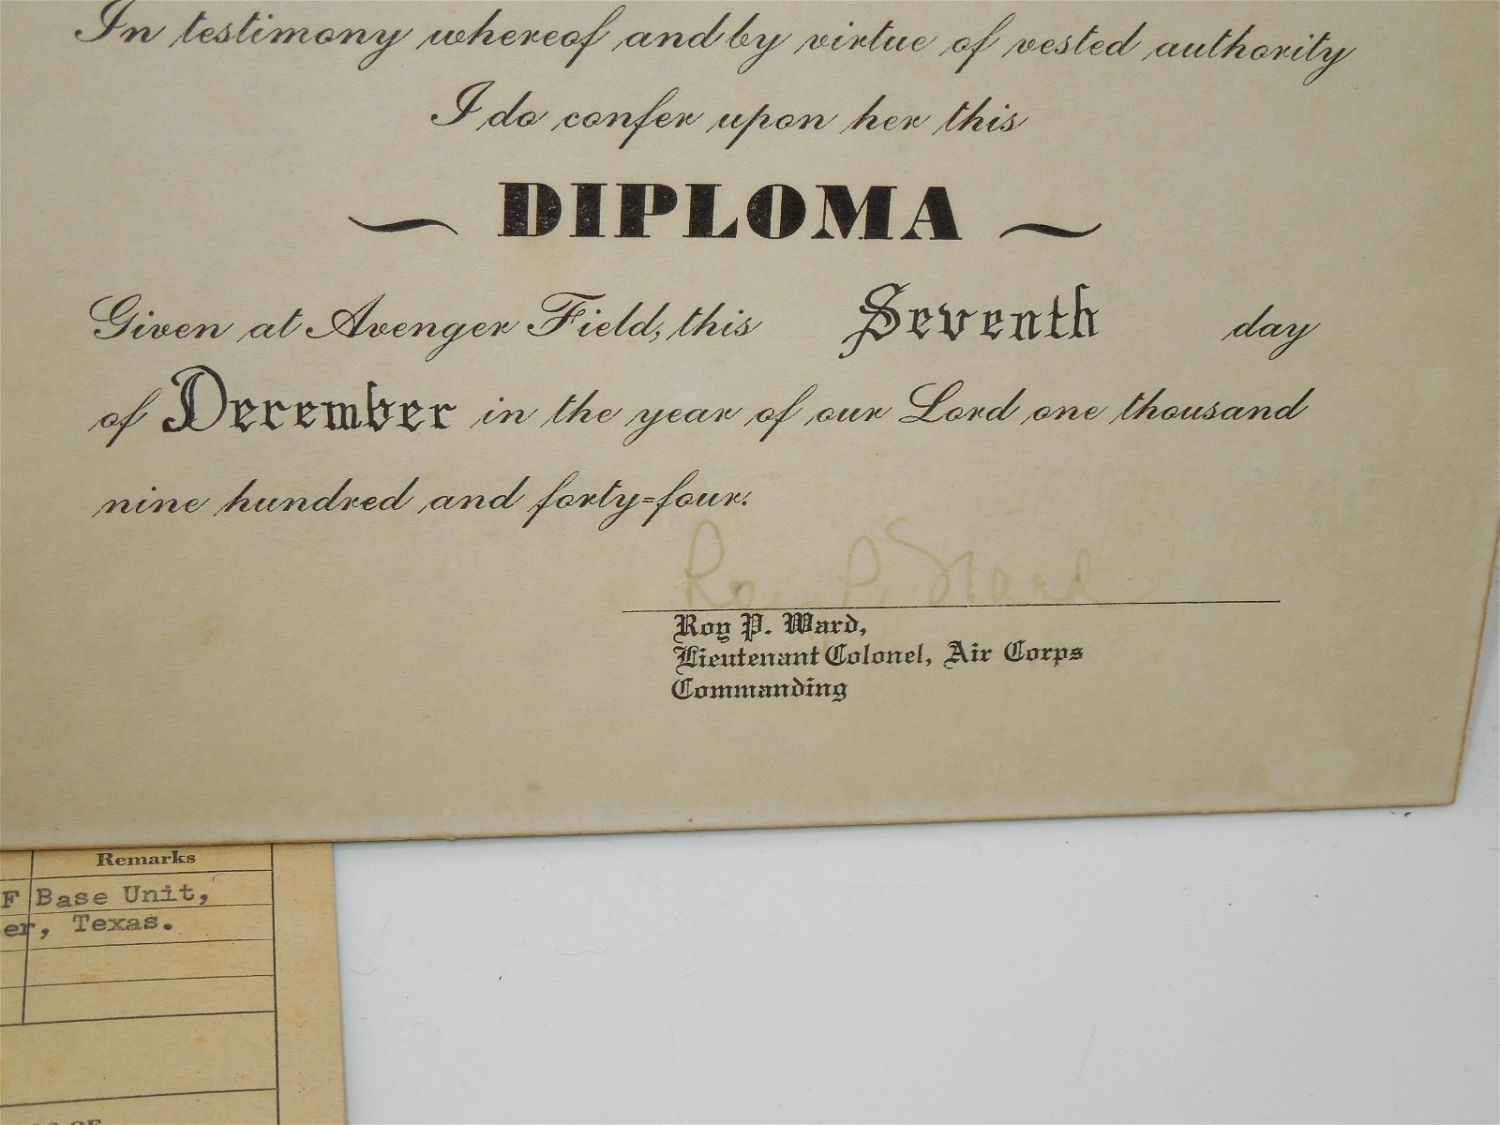 In testimony whereof and by virtue of vested authority
I do confer upon her this
DIPLOMA
Given at Avenger Field, this Seventh day
of December in the year of our Lord one thousand
nine hundred and forty=four.
Roy P. Ward
Roy P. Ward,
Lieutenant Colonel, Air Corps
Commanding
Remarks
F Base Unit,
er, Texas.
OF